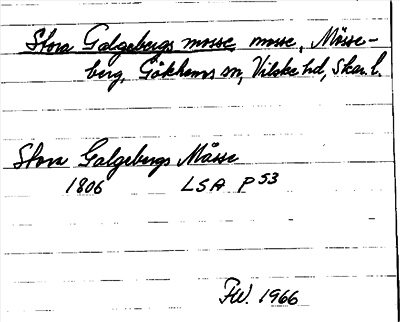 Stora Galgebergs mosse, mosse, Mösse-
berg, Gökhems sn, Vilske hd, Skar. l.
Stora Galgebergs Måsse
1806 LSA P 53
F.W. 1966